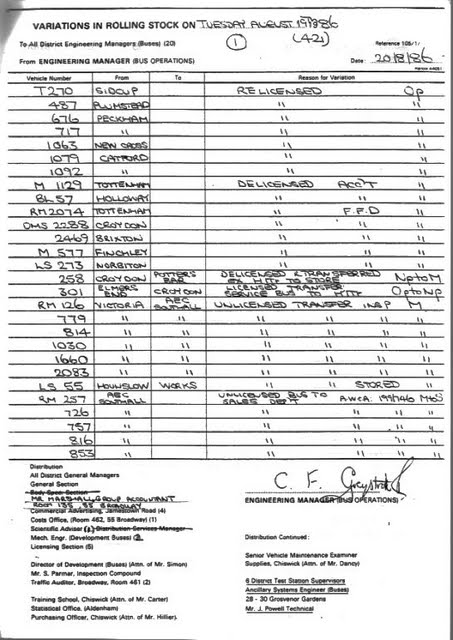 VARIATIONS IN ROLLING STOCK ON TUESDAY AUGUST 19 1986
To All District Engineering Managers (Buses) (20) 1 (421) Reference 105/1/
From ENGINEERING MANAGER (BUS OPERATIONS) Date 20/8/86
Vehicle Number From To Reason for Variation
T270 SIDCUP RELICENSED Op
487 PLUMSTEAD " "
676 PECKHAM " "
717 " " "
1063 NEW CROSS " "
1079 CATFORD " "
1092 " " "
M 1129 TOTTENHAM DELICENSED ACC'T "
BL 57 HOLLOWAY " " "
RM 2074 TOTTENHAM " F.F.D "
DMS 2288 CROYDON " " "
2469 BRIXTON " " "
M 577 FINCHLEY " " "
LS 273 NORBITON " " "
258 CROYDON POTTER'S BAR DELICENSED & TRANSFERRED EX HTTF TO STORE Np to M
301 ELMERS END CROYDON LICENSED TRANSFER SERVICE BUS TO HTTF Op to Np
RM 126 VICTORIA AEC SOUTHALL UNLICENSED TRANSFER INSP M
779 " " " " " "
814 " " " " " "
1030 " " " " " "
1660 " " " " " "
2083 " " " " " "
LS 55 HOUNSLOW WORKS " STORED "
RM 257 AEC SOUTHALL UNLICENSED BUS TO SALES DEPT A.W.C.A.
726 " " " "
757 " " " "
816 " " " "
853 " " " "
Distribution
All District General Managers
General Section
Body Spec Section
MR MARSHALL GROUP ACCOUNTANT
ROOM 135, 55 BROADWAY
Commercial Advertising, Jamestown Road (4)
Costs Office, (Room 462, 55 Broadway) (1)
Scientific Adviser (1) Distribution Services Manager
Mech. Engr. (Development Buses)
Licensing Section (5)
Director of Development (Buses) (Attn. of Mr. Simon)
Mr. S. Parmar, Inspection Compound
Traffic Auditor, Broadway, Room 461 (2)
Training School, Chiswick (Attn. of Mr. Carter)
Statistical Office, (Aldenham)
Purchasing Officer, Chiswick (Attn. of Mr. Hillier).
C. F.
ENGINEERING MANAGER (BUS OPERATIONS)
Distribution Continued:
Senior Vehicle Maintenance Examiner
Supplies, Chiswick (Attn. of Mr. Dancy)
6 District Test Station Supervisors
Ancillary Systems Engineer (Buses)
28 - 30 Grosvenor Gardens
Mr. J. Powell Technical